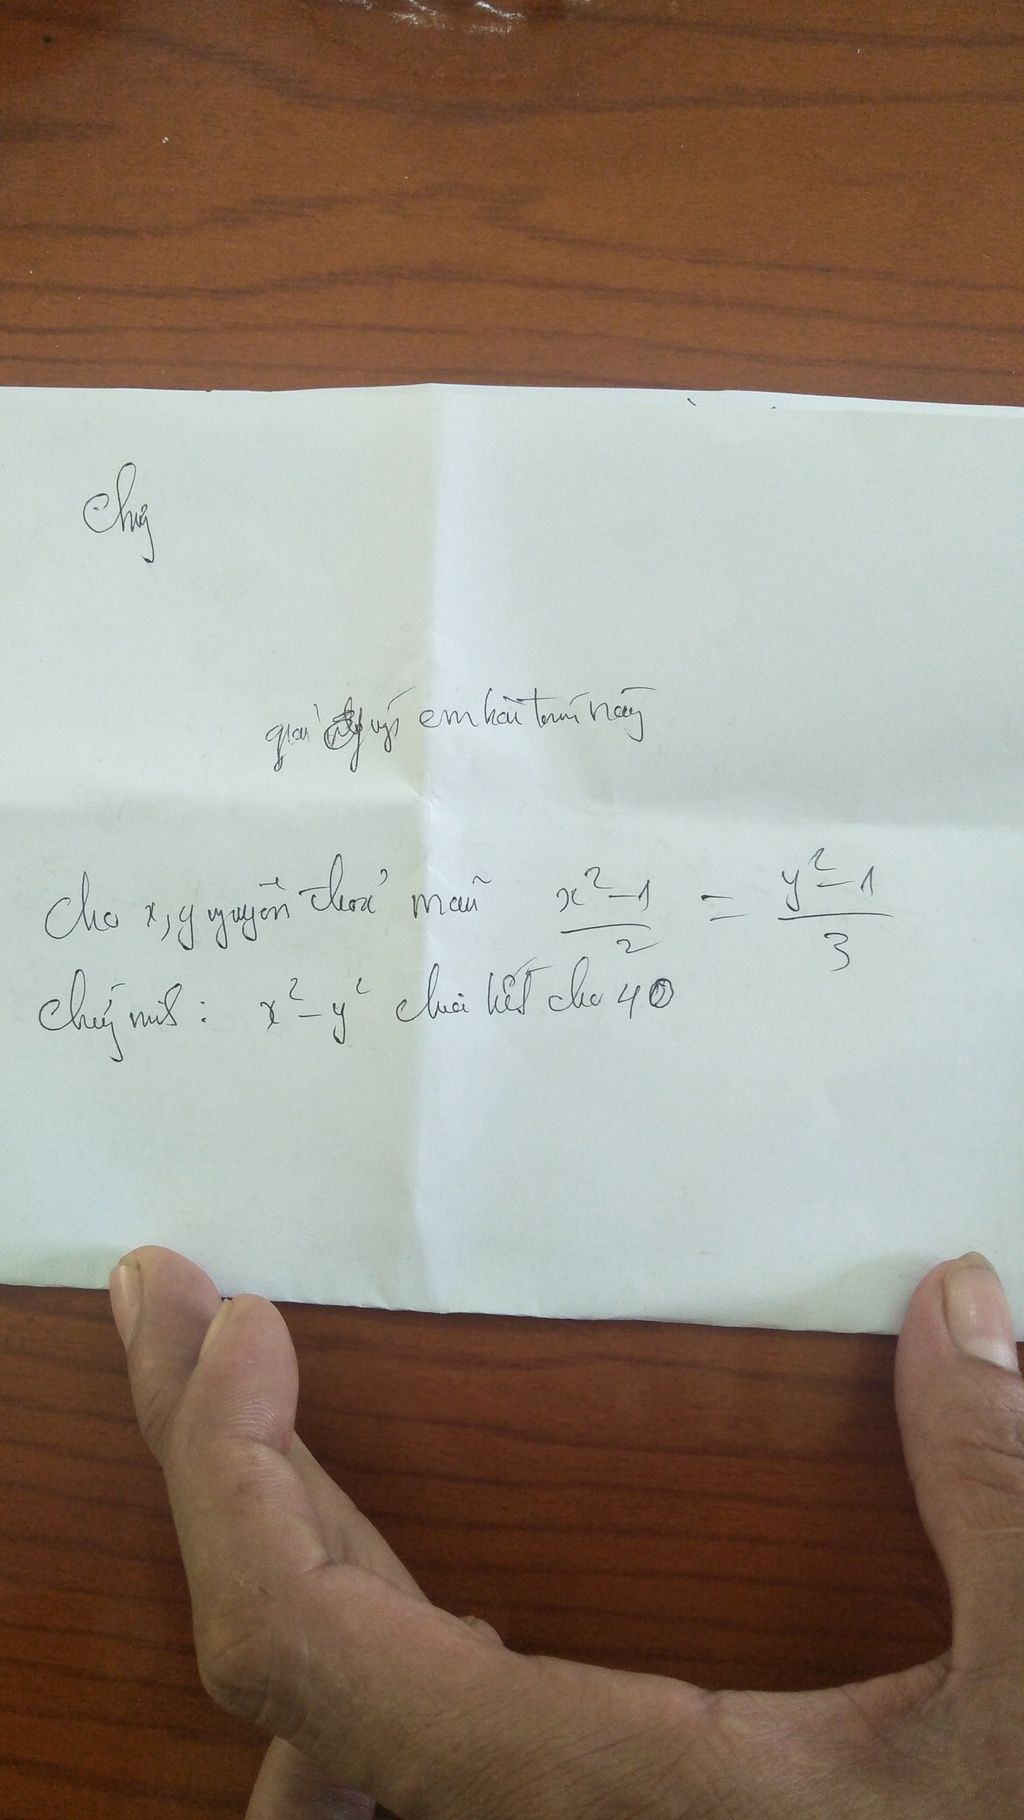 giải với em bài toán này
Cho x, y nguyên thoả mãn \frac{x²-1}{2} = \frac{y²-1}{3}
Chứng minh: x² - y² chia hết cho 40